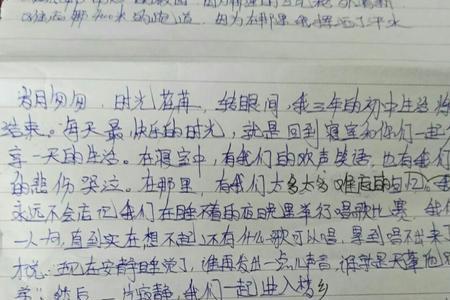 因为在那里我挥洒了汗水
岁月匆匆，时光荏苒，转眼间，我三年的初中生活将
结束。每天最快乐的时光，就是回到寝室和你们一起分
享一天的生活。在寝室中，有我们的欢声笑语，也有我们
的悲伤哭泣。在那里，有我们太多太多难忘的回忆。我
永远不会忘记我们在睡不着的夜晚里举行唱歌比赛，我们
一人一句，直到实在想不起还有什么歌可以唱，累到唱不出来了
才说：现在安静睡觉了，谁再发出一点儿声音，谁就是天蓬
然后一片寂静，我们一起进入梦乡